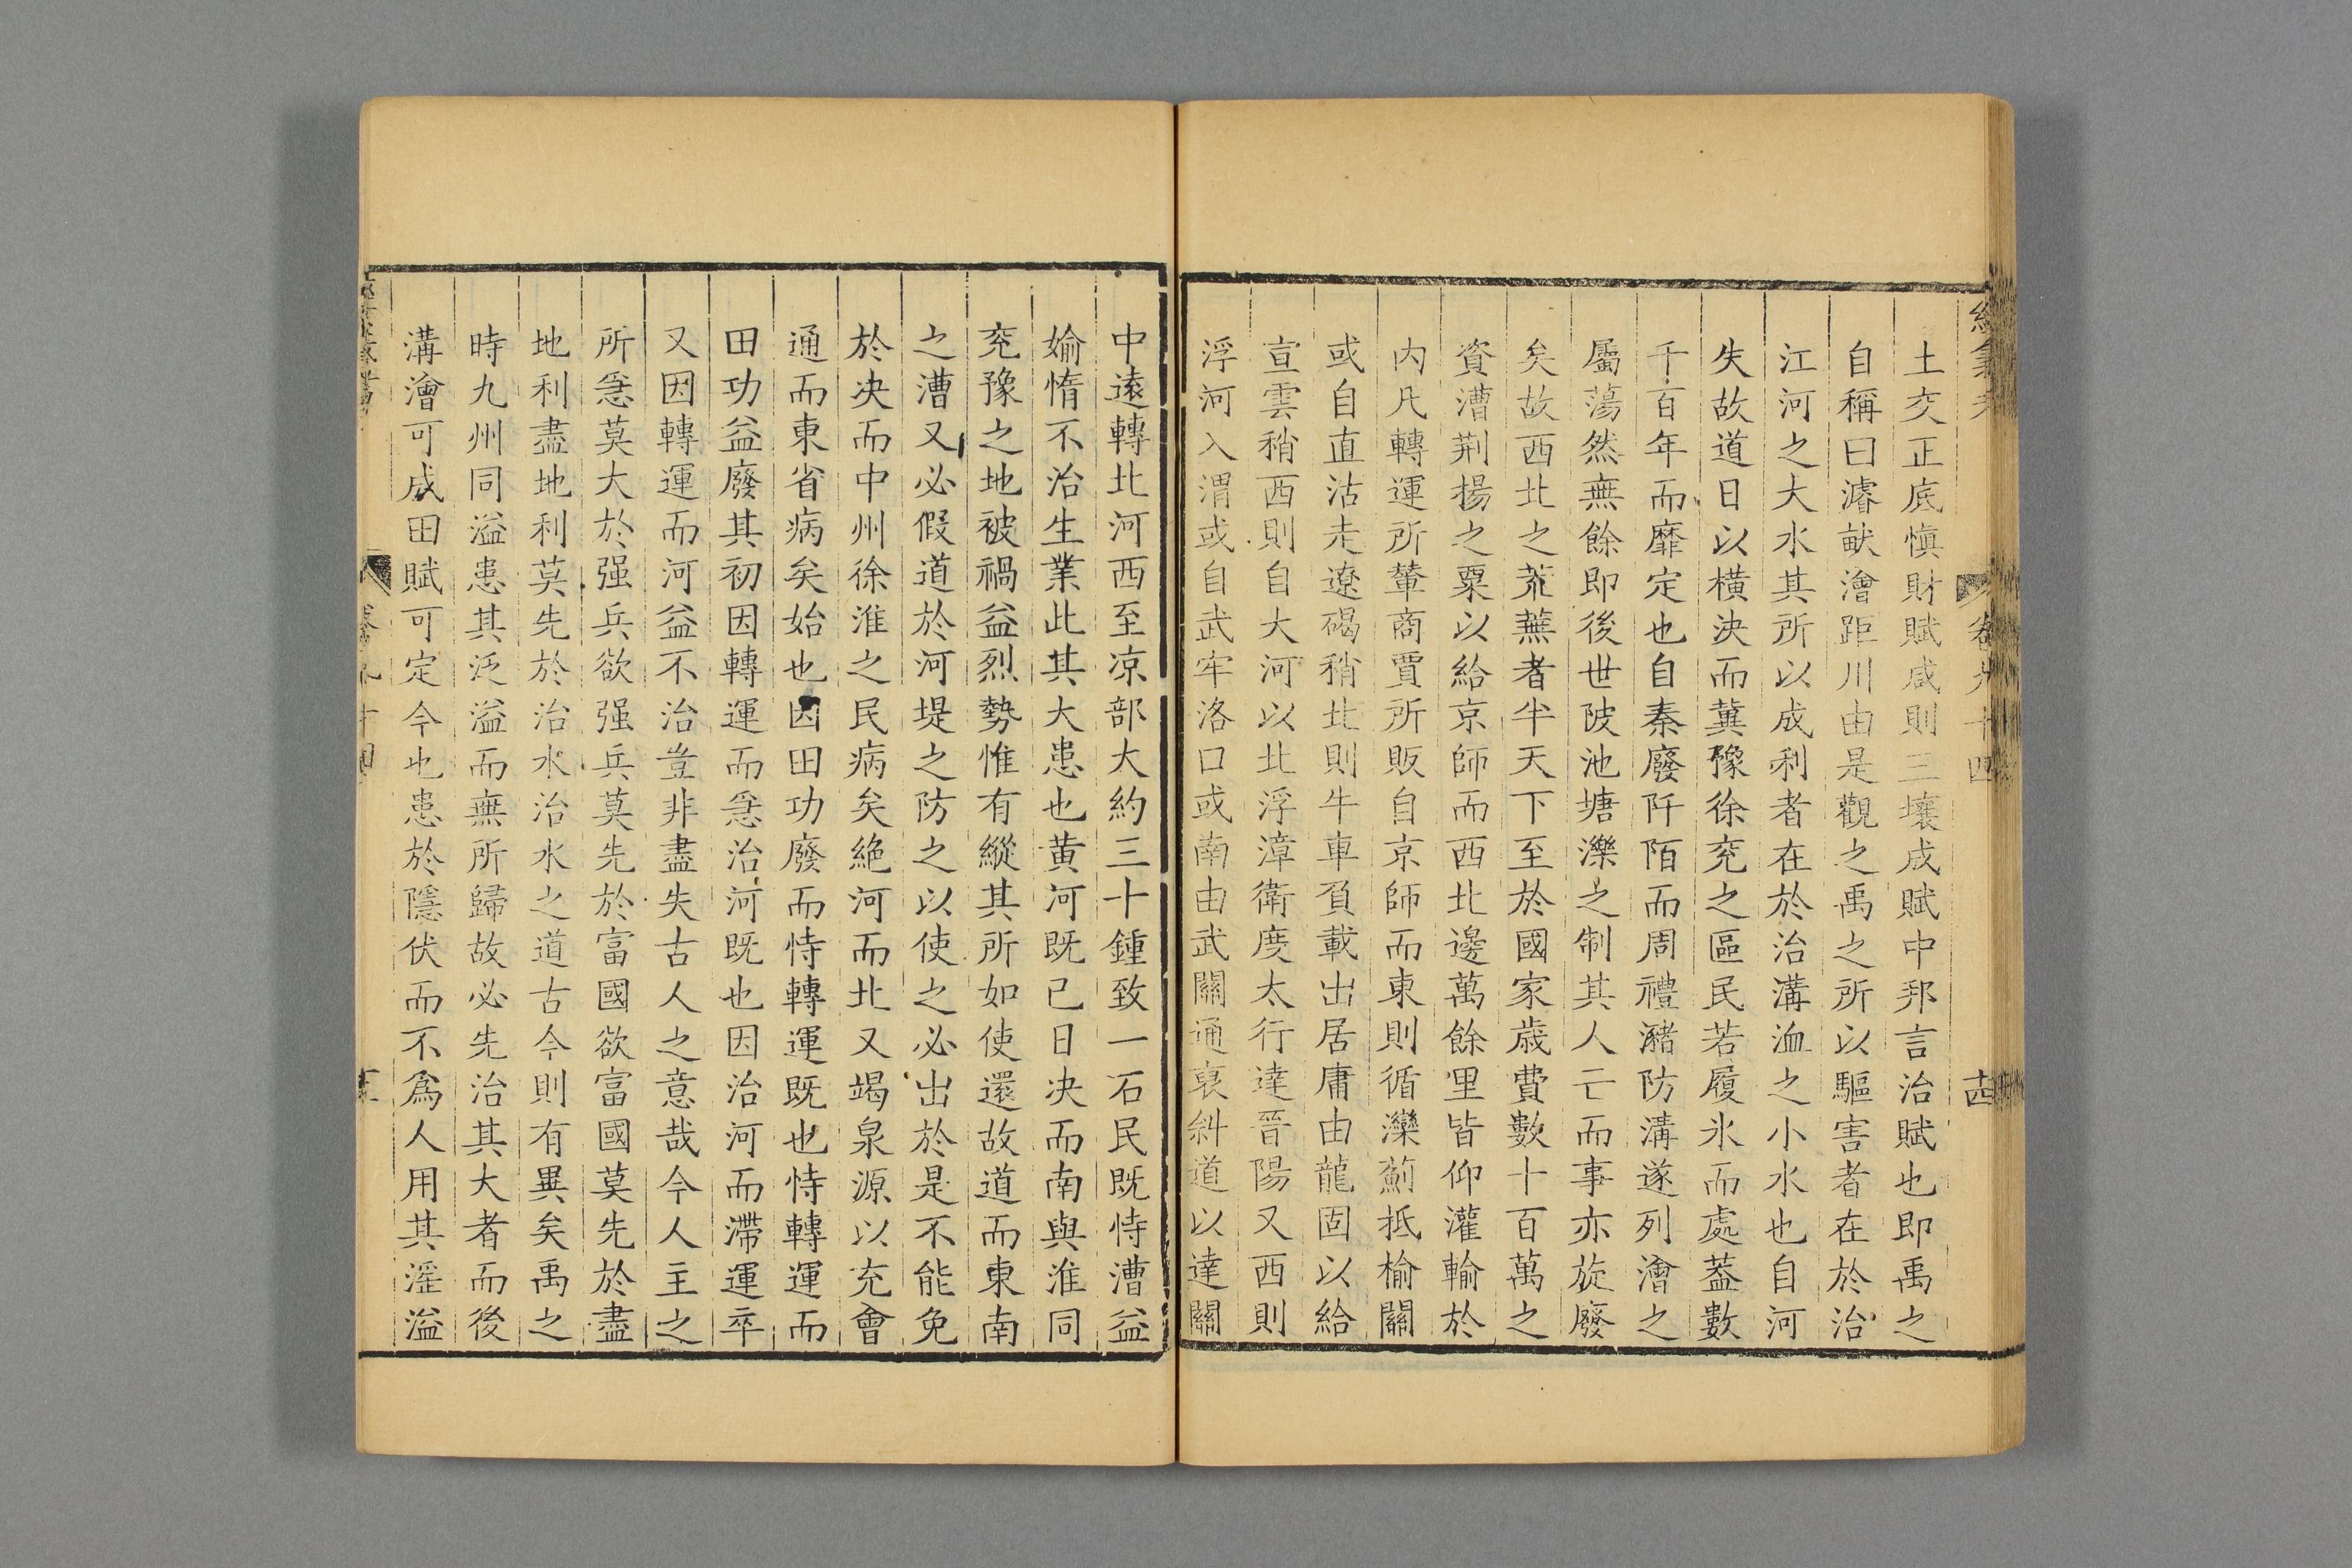 卷九十四
土交正底慎財賦咸則三壤成賦中邦言治賦也即禹之
自稱曰濬畎澮距川由是觀之禹之所以驅害者在於治
江河之大水其所以成利者在於治溝洫之小水也自河
失故道日以橫決而冀豫徐兖之區民若履氷而處葢數
千百年而靡定也自秦廢阡陌而周禮瀦防溝遂列澮之
屬蕩然無餘即後世陂池塘濼之制其人亡而事亦旋廢
矣故西北之荒蕪者半天下至於國家歲費數十百萬之
資漕荆揚之粟以給京師而西北邊萬餘里皆仰灌輸於
内凡轉運所輦商賈所販自京師而東則循灤薊抵榆關
或自直沽走遼碣稍北則牛車負載出居庸由龍固以給
宣雲稍西則自大河以北浮漳衛度太行達晉陽又西則
浮河入渭或自武牢洛口或南由武關通襃斜道以達關
中遠轉北河西至凉部大約三十鍾致一石民既恃漕益
婾惰不治生業此其大患也黄河既已日决而南與淮同
兖豫之地被禍益烈勢惟有縱其所如使還故道而東南
之漕又必假道於河堤之防之以使之必出於是不能免
於决而中州徐淮之民病矣絶河而北又竭泉源以充會
通而東省病矣始也因田功廢而恃轉運既也恃轉運而
田功益廢其初因轉運而急治河既也因治河而滯運卒
又因轉運而河益不治豈非盡失古人之意哉今人主之
所急莫大於强兵欲强兵莫先於富國欲富國莫先於盡
地利盡地利莫先於治水治水之道古今則有異矣禹之
時九州同溢患其泛溢而無所歸故必先治其大者而後
溝澮可成田賦可定今也患於隱伏而不爲人用其滛溢